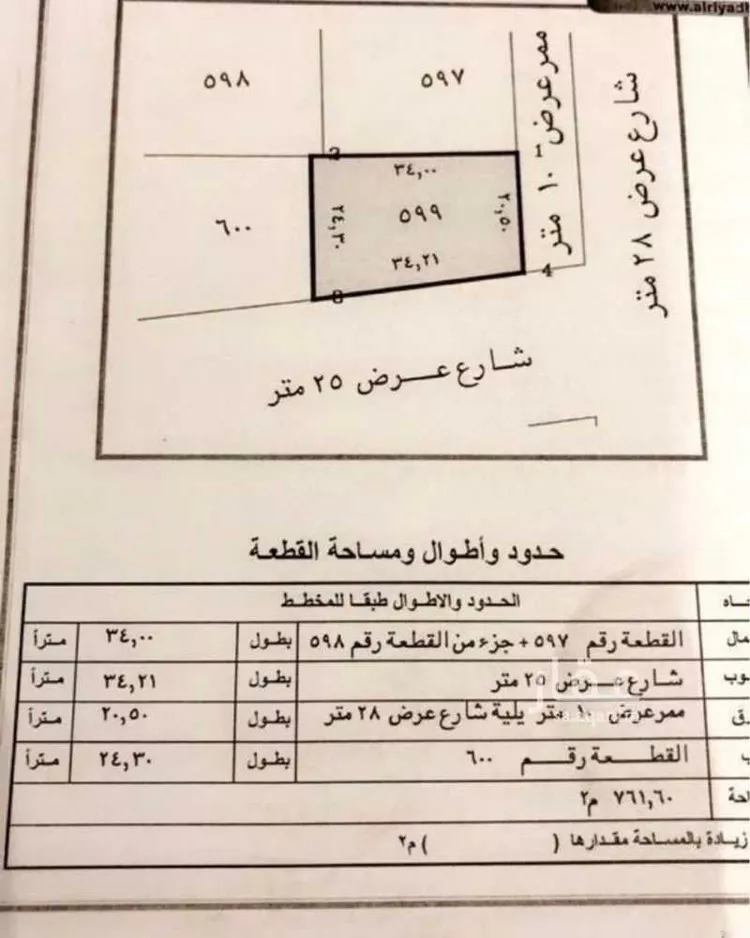 www.alriyadh
٥٩٨
٥٩٧
ممر عرض ١٠ متر
شارع عرض ٢٨ متر
1
٣٤,٠٠
٦٠٠
٢٤,٣٠
٥٩٩
٢٠,٥٠
٣٤,٢١
4
شارع عرض ٢٥ متر
حدود وأطوال ومساحة القطعة
الحدود والاطوال طبقا للمخطط
القطعة رقم ٥٩٧ + جزء من القطعة رقم ٥٩٨ بطول ٣٤,٠٠ متراً
شارع عرض ٢٥ متر بطول ٣٤,٢١ متراً
ممر عرض ١٠ متر يلية شارع عرض ٢٨ متر بطول ٢٠,٥٠ متراً
القطعة رقم ٦٠٠ بطول ٢٤,٣٠ متراً
٧٦١,٦٠ م٢
زيادة بالمساحة مقدارها ( ) م٢
عقار